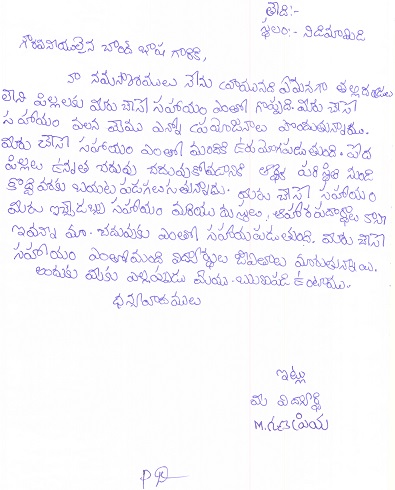 తేది:-
స్థలం:- నిడిమామిడి
గౌరవనీయులైన చాంద్ బాషా గారికి,
నా నమస్కారములు నేను వ్రాయునది ఏమనగా తల్లిదండ్రులు
లేని పిల్లలకు మీరు చేసే సహాయం ఎంతో గొప్పది. మీరు చేసే
సహాయం వలన మేము ఎన్నో ప్రయోజనాలు పొందుతున్నాము.
మీరు చేసే సహాయం ఎంతో మందికి ఉపయోగపడుతుంది. పేద
పిల్లలు ఉన్నత చదువు చదువుకోవడానికి ఆర్థిక పరిస్థితి నుండి
కొద్ది వరకు బయట పడగలుగుతున్నారు. మీరు చేసే సహాయం
మీరు ఇచ్చే డబ్బు సహాయం మరియు దుస్తులు, ఆహార పదార్థాలు
ఇవన్నీ మా చదువుకు ఎంతో సహాయపడుతుంది. మీరు చేసే
సహాయం ఎంతోమంది విద్యార్థుల జీవితాలు మారుతున్నాయి.
అందుకు మీకు ఎల్లప్పుడు మేము ఋణపడి ఉంటాము.
ధన్యవాదములు
ఇట్లు
మీ విద్యార్థి
M. ప్రియ